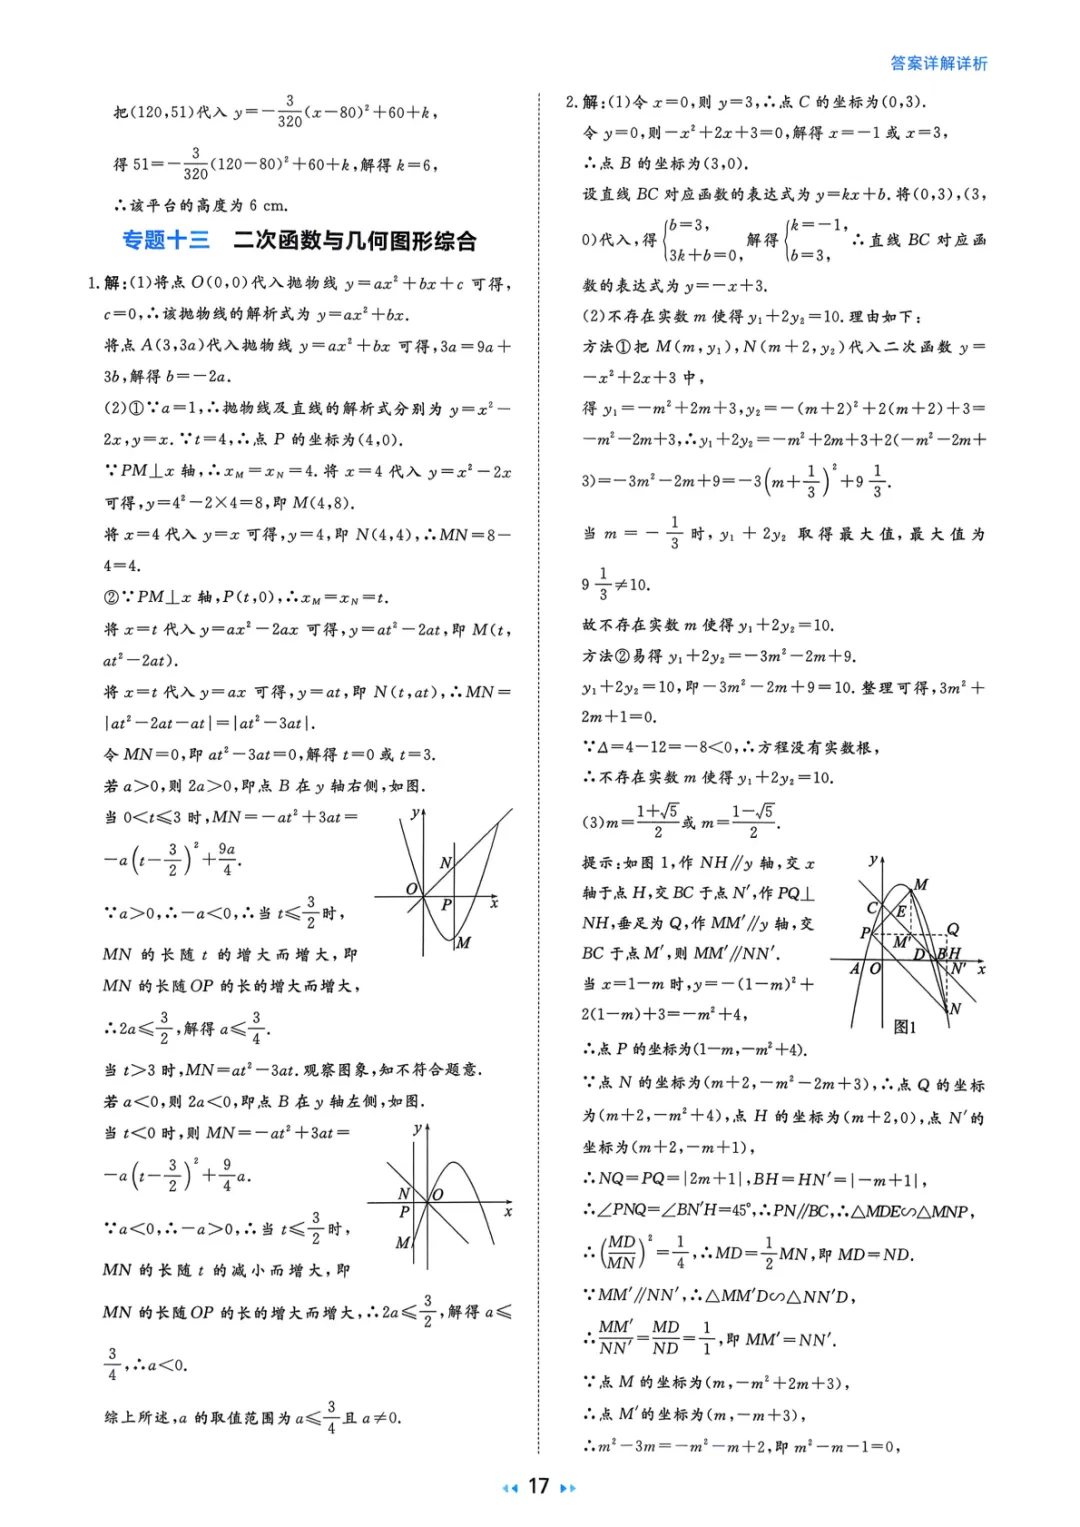 答案详解详析
把(120,51)代入 y=-3/320(x-80)²+60+k,
得 51=-3/320(120-80)²+60+k,解得 k=6,
∴该平台的高度为 6 cm.
专题十三 二次函数与几何图形综合
1.解:(1)将点 O(0,0)代入抛物线 y=ax²+bx+c 可得,
c=0,∴该抛物线的解析式为 y=ax²+bx.
将点 A(3,3a)代入抛物线 y=ax²+bx 可得,3a=9a+
3b,解得 b=-2a.
(2)①∵a=1,∴抛物线及直线的解析式分别为 y=x²-
2x,y=x.∵t=4,∴点 P 的坐标为(4,0).
∵PM⊥x 轴,∴x_M=x_N=4.将 x=4 代入 y=x²-2x
可得,y=4²-2×4=8,即 M(4,8).
将 x=4 代入 y=x 可得,y=4,即 N(4,4),∴MN=8-
4=4.
②∵PM⊥x 轴,P(t,0),∴x_M=x_N=t.
将 x=t 代入 y=ax²-2ax 可得,y=at²-2at,即 M(t,
at²-2at).
将 x=t 代入 y=ax 可得,y=at,即 N(t,at),∴MN=
|at²-2at-at|=|at²-3at|.
令 MN=0,即 at²-3at=0,解得 t=0 或 t=3.
若 a>0,则 2a>0,即点 B 在 y 轴右侧,如图.
当 0<t≤3 时,MN=-at²+3at=
-a(t-3/2)²+9a/4.
∵a>0,∴-a<0,∴当 t≤3/2时,
MN 的长随 t 的增大而增大,即
MN 的长随OP 的长的增大而增大,
∴2a≤3/2,解得 a≤3/4.
y
N
O
P
x
M
当 t>3 时,MN=at²-3at.观察图象,知不符合题意.
若 a<0,则 2a<0,即点 B 在 y 轴左侧,如图.
当 t<0 时,则 MN=-at²+3at=
-a(t-3/2)²+9/4a.
∵a<0,∴-a>0,∴当 t≤3/2时,
MN 的长随 t 的减小而增大,即
y
N
O
P
x
M
MN 的长随OP 的长的增大而增大,∴2a≤3/2,解得 a≤
3/4,∴a<0.
综上所述,a 的取值范围为 a≤3/4且 a≠0.
2.解:(1)令 x=0,则 y=3,∴点 C 的坐标为(0,3).
令 y=0,则-x²+2x+3=0,解得 x=-1 或 x=3,
∴点 B 的坐标为(3,0).
设直线 BC 对应函数的表达式为 y=kx+b.将(0,3),(3,
0)代入,得{b=3, 3k+b=0, 解得{k=-1, b=3, ∴直线 BC 对应函
数的表达式为 y=-x+3.
(2)不存在实数 m 使得 y₁+2y₂=10.理由如下:
方法①把 M(m,y₁),N(m+2,y₂)代入二次函数 y=
-x²+2x+3 中,
得 y₁=-m²+2m+3,y₂=-(m+2)²+2(m+2)+3=
-m²-2m+3,∴y₁+2y₂=-m²+2m+3+2(-m²-2m+
3)=-3m²-2m+9=-3(m+1/3)²+9 1/3.
当 m=-1/3 时,y₁+2y₂ 取得最大值,最大值为
9 1/3≠10.
故不存在实数 m 使得 y₁+2y₂=10.
方法②易得 y₁+2y₂=-3m²-2m+9.
y₁+2y₂=10,即-3m²-2m+9=10.整理可得,3m²+
2m+1=0.
∵Δ=4-12=-8<0,∴方程没有实数根,
∴不存在实数 m 使得 y₁+2y₂=10.
(3)m=(1+√5)/2或 m=(1-√5)/2.
提示:如图 1,作 NH∥y 轴,交 x
轴于点 H,交 BC 于点 N′,作 PQ⊥
NH,垂足为 Q,作 MM′∥y 轴,交
BC 于点 M′,则 MM′∥NN′.
当 x=1-m 时,y=-(1-m)²+
2(1-m)+3=-m²+4,
y
M
C
E
P
Q
M′
D
B
H
A
O
N′
x
N
图1
∴点 P 的坐标为(1-m,-m²+4).
∵点 N 的坐标为(m+2,-m²-2m+3),∴点 Q 的坐标
为(m+2,-m²+4),点 H 的坐标为(m+2,0),点 N′的
坐标为(m+2,-m+1),
∴NQ=PQ=|2m+1|,BH=HN′=|-m+1|,
∴∠PNQ=∠BN′H=45°,∴PN∥BC,∴△MDE∽△MNP,
∴(MD/MN)²=1/4,∴MD=1/2MN,即 MD=ND.
∵MM′∥NN′,∴△MM′D∽△NN′D,
∴MM′/NN′=MD/ND=1/1,即 MM′=NN′.
∵点 M 的坐标为(m,-m²+2m+3),
∴点 M′的坐标为(m,-m+3),
∴m²-3m=-m²-m+2,即 m²-m-1=0,
17